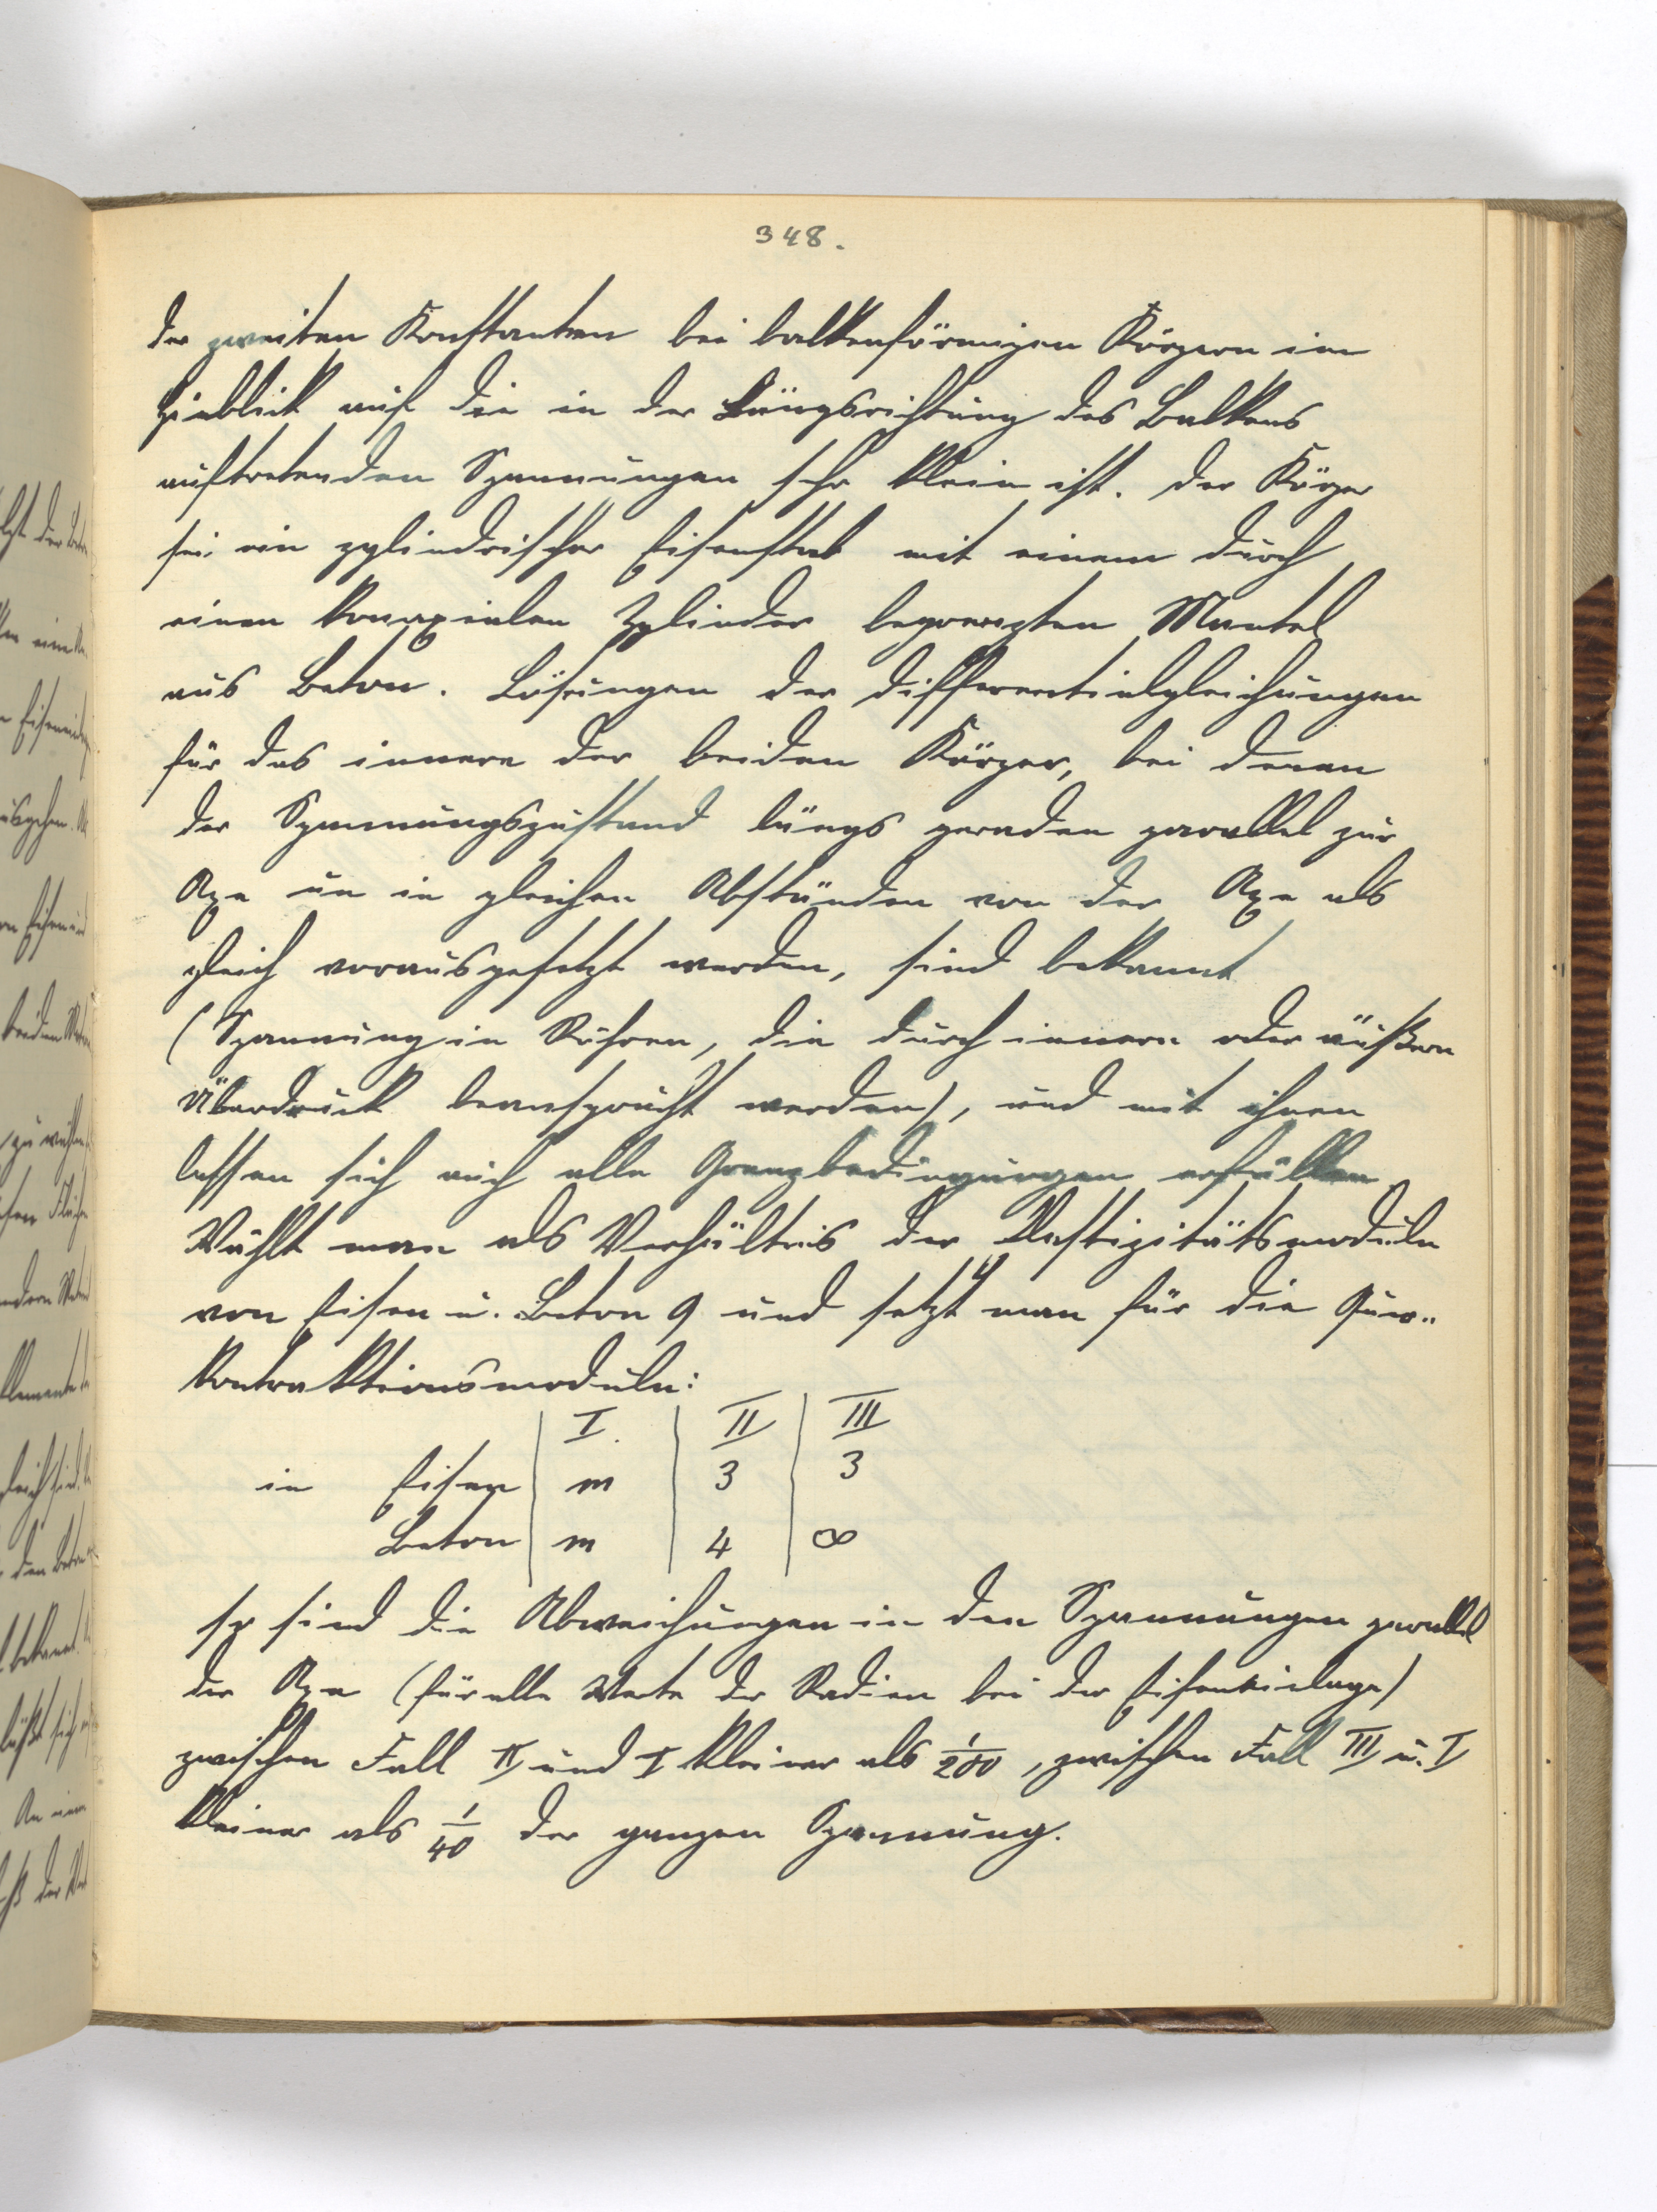 348.
der zweiten Konstanten bei balkenförmigen Körpern im
Hinblick auf die in der Längsrichtung des Balkens
auftretenden Spannungen sehr klein ist. Der Körper
sei ein zylindrischer Eisenstab mit einem durch
einen konaxialen Zylinder begrenzten Mantel
aus Beton. Lösungen der Differentialgleichungen
für das innere der beiden Körper, bei denen
der Spannungszustand längs geraden parallel zur
Axe un in gleichen Abständen von der Axe als
gleich vorausgesetzt werden, sind bekannt
(Spannung in Röhren, die durch innern oder äußern
Überdruck beansprucht werden), und mit ihnen
lassen sich auch alle Grenzbedingungen erfüllen
Wählt man als Verhältnis der Elastizitätsmoduln
von Eisen u. Beton 9 und setzt man für die Quer-
kontraktionsmoduln:
I. II III
in Eisen m 3 3
Beton m 4 ∞
so sind die Abweichungen in den Spannungen parallel
der Axe (für alle Werte der Radien bei der Eiseneinlage)
zwischen Fall II und I kleiner als 1/200, zwischen Fall III u. I
kleiner als 1/40 der ganzen Spannung.